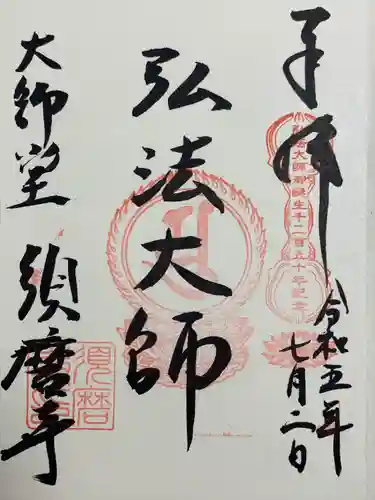 奉拝
弘法大師御誕生千二百五十年記念
令和五年
七月二日
弘法大師
大師堂
須磨寺
須磨